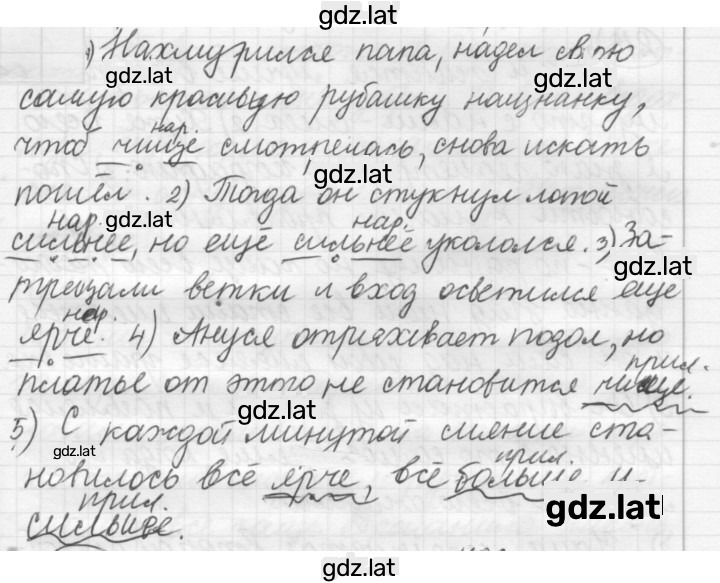 gdz.lat
1) Нахмурился папа, надел свою
gdz.lat gdz.lat
самую красивую рубашку наизнанку,
нар.
чтоб чище смотрелась, снова искать
gdz.lat
пошёл. 2) Тогда он стукнул лапой
нар. gdz.lat нар.
сильнее, но ещё сильнее укололся. 3) За-
gdz.lat
трещали ветки и вход осветился еще
нар.
ярче. 4) Ануся отряхивает подол, но
прил.
платье от этого не становится чище.
gdz.lat
5) С каждой минутой сияние ста-
gdz.lat прил.
новилось всё ярче, всё больше и
прил. gdz.lat
сильнее.
gdz.lat